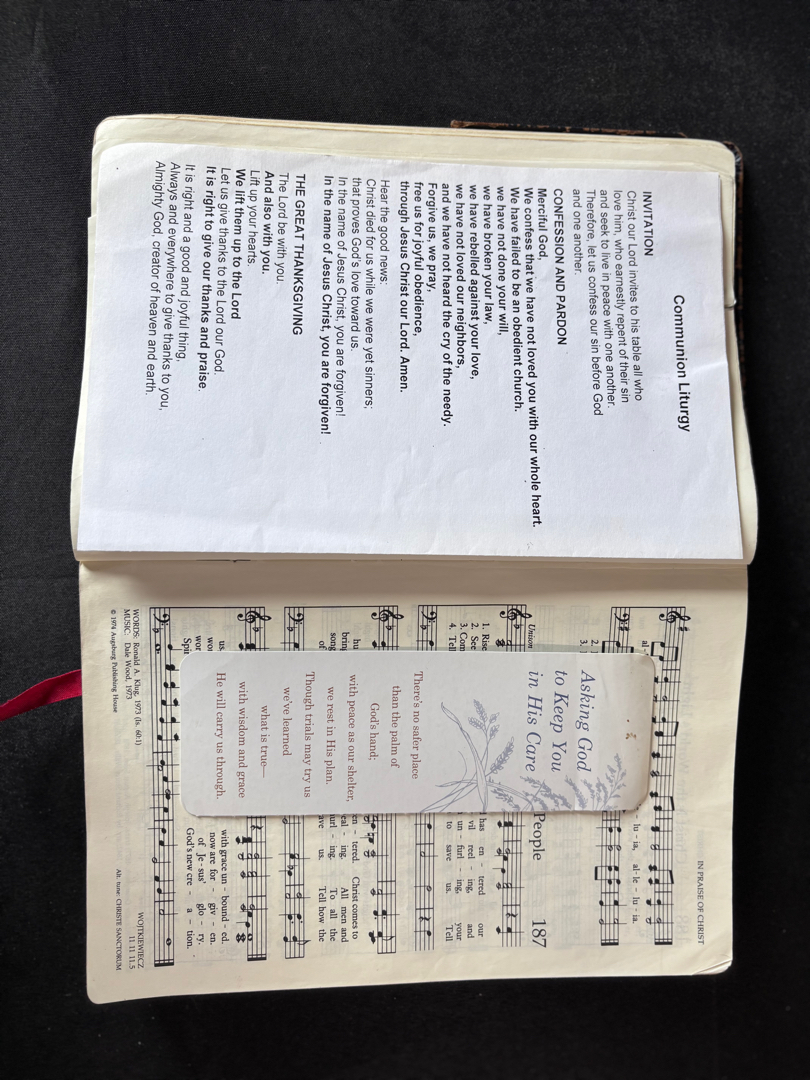 Communion Liturgy
INVITATION
Christ our Lord invites to his table all who
love him, who earnestly repent of their sin
and seek to live in peace with one another.
Therefore, let us confess our sin before God
and one another.
CONFESSION AND PARDON
Merciful God,
We confess that we have not loved you with our whole heart.
We have failed to be an obedient church.
we have not done your will,
we have broken your law,
we have rebelled against your love,
we have not loved our neighbors,
and we have not heard the cry of the needy.
Forgive us, we pray,
free us for joyful obedience,
through Jesus Christ our Lord. Amen.
Hear the good news:
Christ died for us while we were yet sinners;
that proves God's love toward us.
In the name of Jesus Christ, you are forgiven!
In the name of Jesus Christ, you are forgiven!
THE GREAT THANKSGIVING
The Lord be with you.
And also with you.
Lift up your hearts.
We lift them up to the Lord
Let us give thanks to the Lord our God.
It is right to give our thanks and praise.
It is right and a good and joyful thing,
Always and everywhere to give thanks to you,
Almighty God, creator of heaven and earth.
IN PRAISE OF CHRIST
al -
- lu - ia, al - le - lu - ia.
2.
3.
- lu - ia.
People 187
Union
1. Rise
2. See
3. Com
4. Tell
has en - tered our
vil reel - ing, and
un - furl - ing, your
to save us. Tell
en - tered. Christ comes to
eal - ing. All men and
url - ing. To all the
ave us. Tell how the
hu
brin
song
of
with grace un - bound - ed.
now are for - giv - en.
of Je - sus' glo - ry.
God's new cre - a - tion.
us.
wo
wor
Spi
WORDS: Ronald A. Klug, 1973 (Is. 60:1)
MUSIC: Dale Wood, 1973
© 1974 Augsburg Publishing House
WOJTKIEWIECZ
11 11 11.5
Alt. tune: CHRISTE SANCTORUM
Asking God
to Keep You
in His Care
There's no safer place
than the palm of
God's hand;
with peace as our shelter,
we rest in His plan.
Though trials may try us
we've learned
what is true—
with wisdom and grace
He will carry us through.